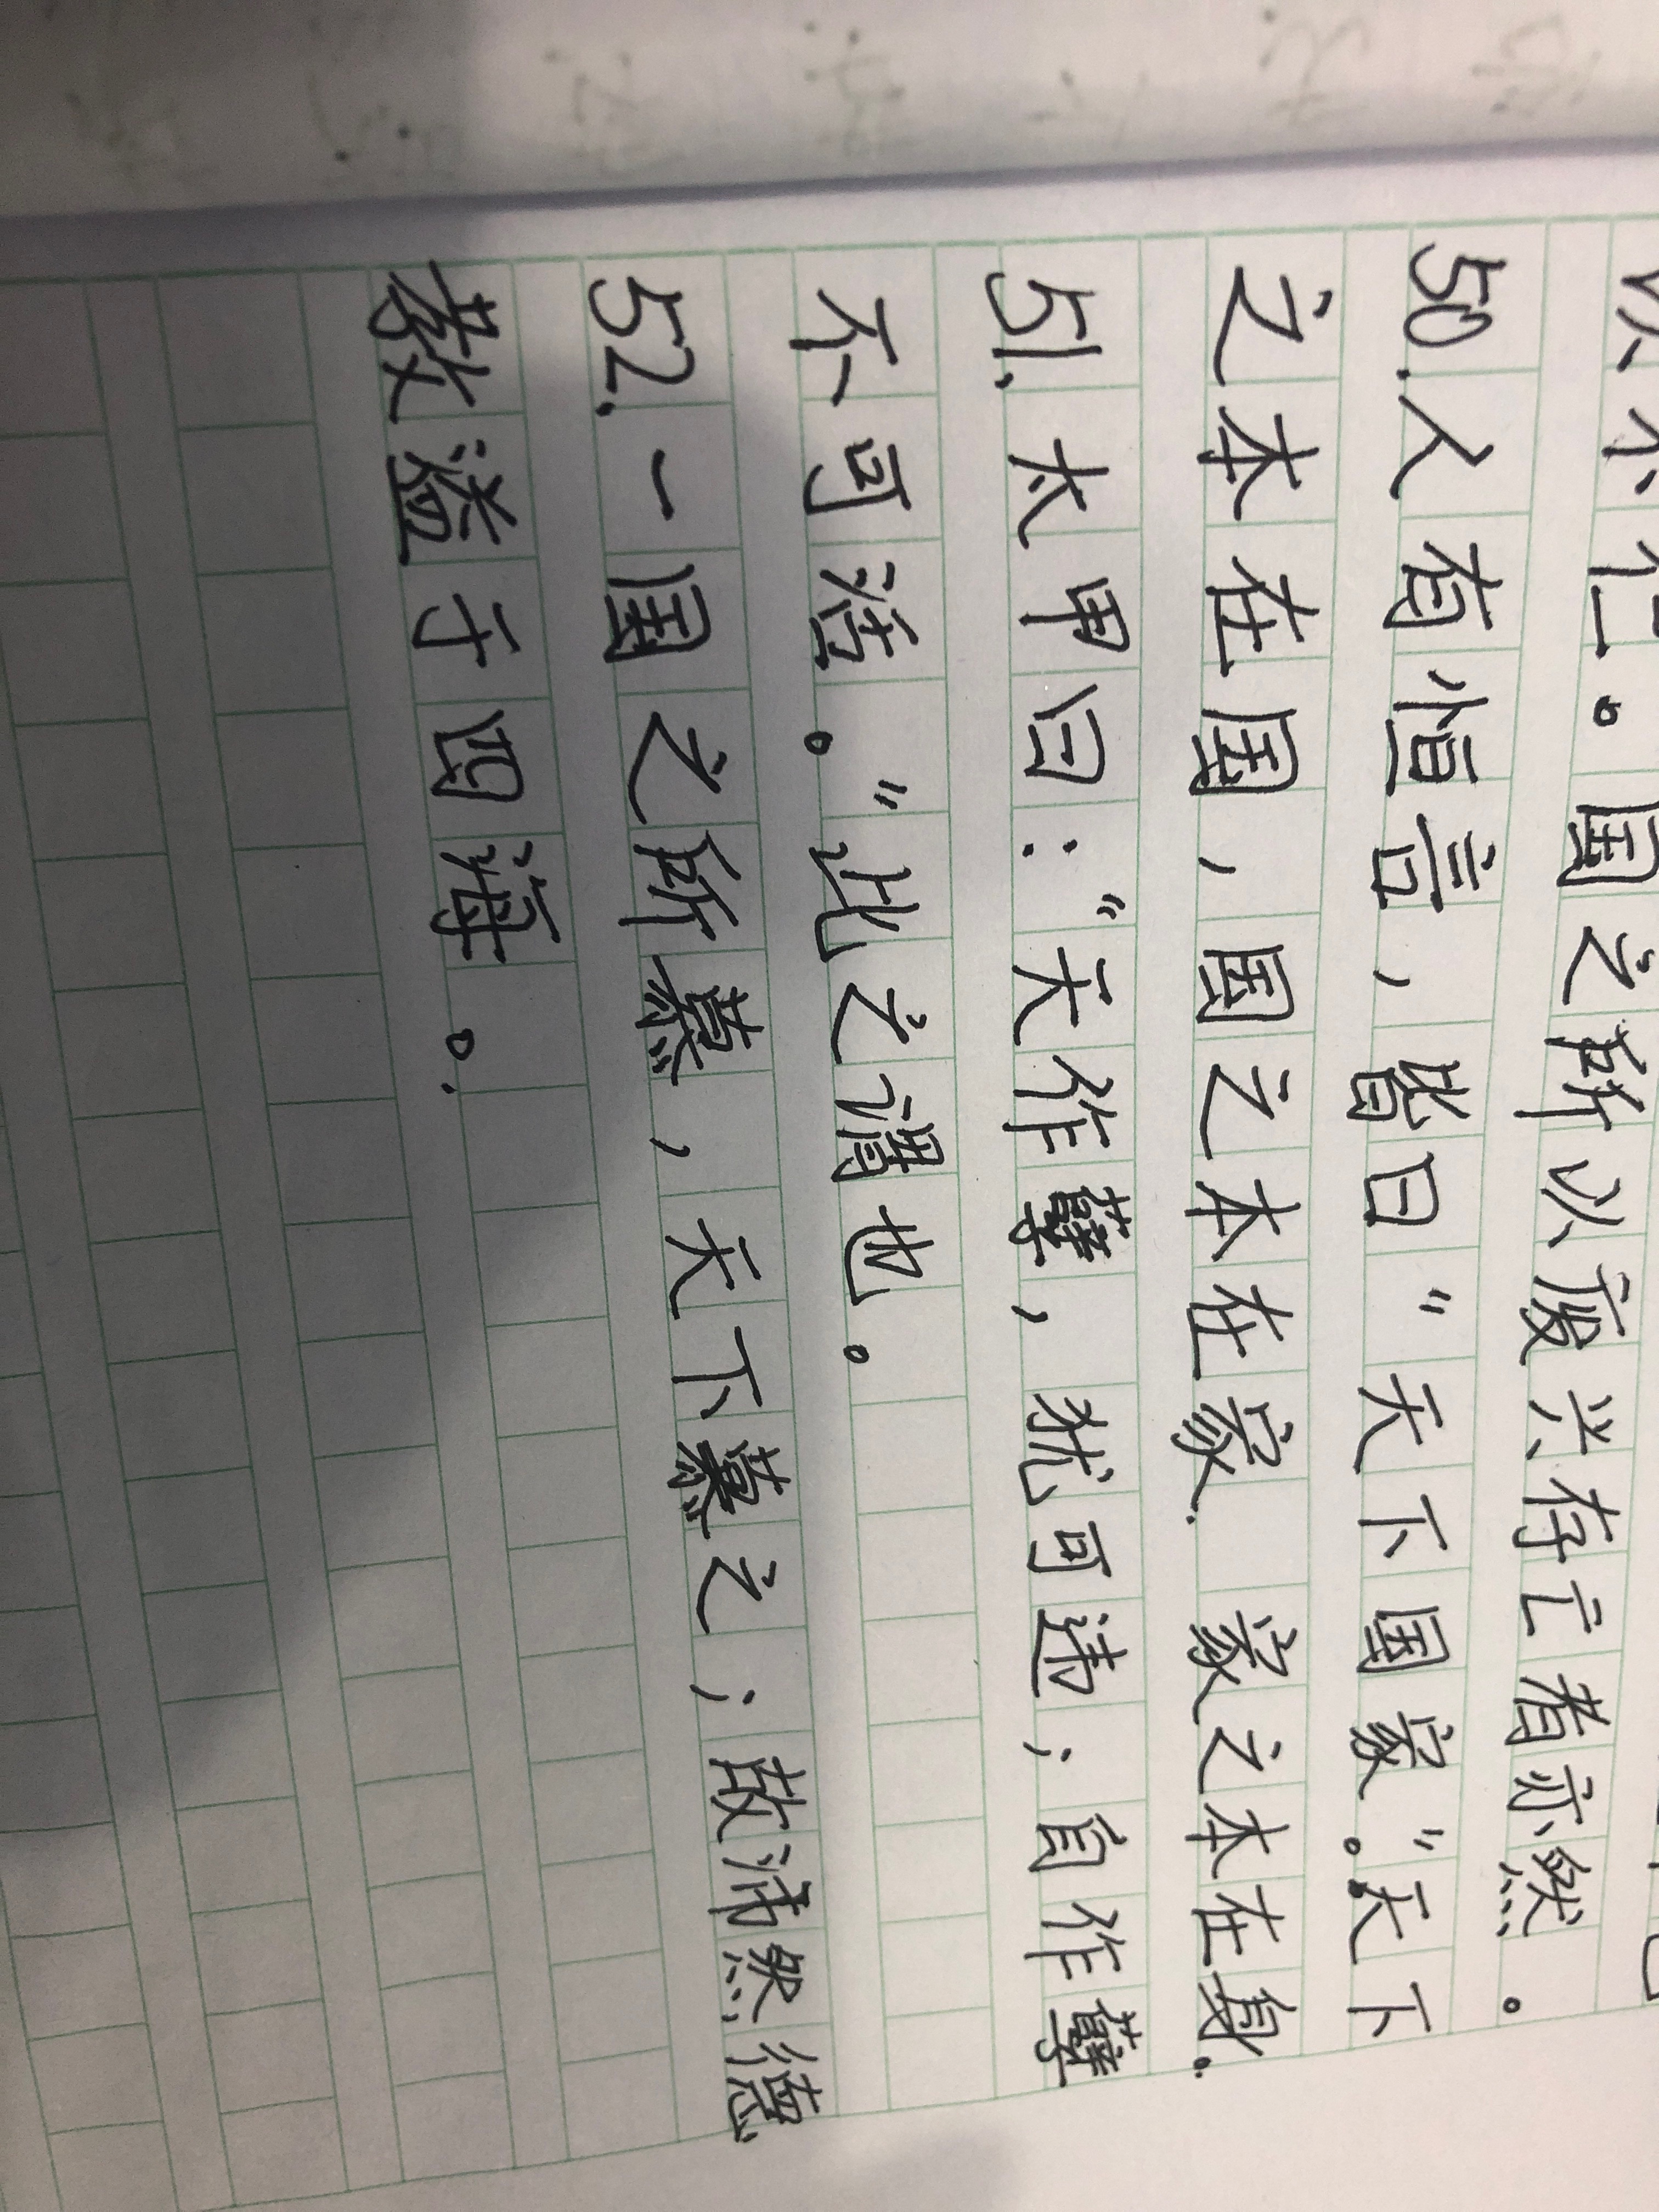 以不仁。国之所以废兴存亡者亦然。
50.人有恒言，皆曰“天下国家”。天下
之本在国，国之本在家.家之本在身.
51.太甲曰：“天作孽，犹可违；自作孽
不可活。”此之谓也。
52.一国之所慕，天下慕之；故沛然德
教溢于四海。